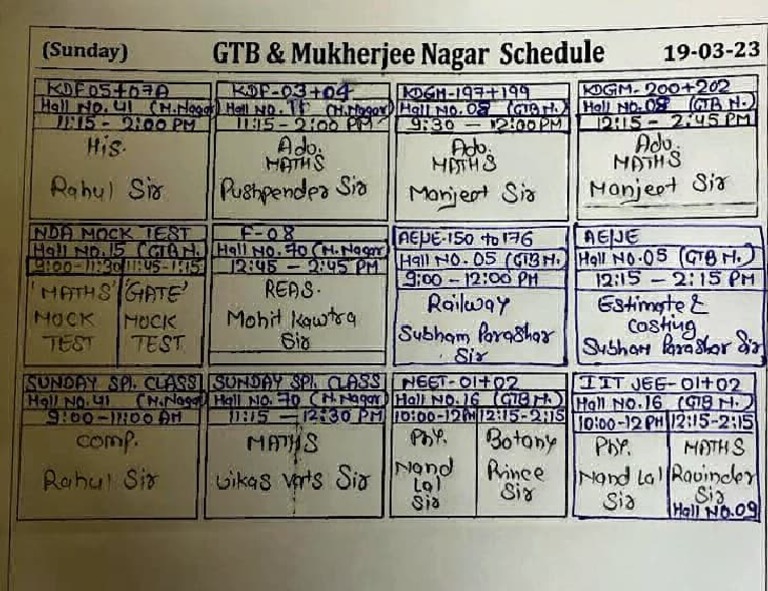 (Sunday) GTB & Mukherjee Nagar Schedule 19-03-23
KDF05+07A
Hall No. 41 (M.Nagar)
11:15 - 2:00 PM
His.
Rahul Sir
KDF-03+04
Hall No. 11 (M.Nagar)
11:15 - 2:00 PM
Adv.
MATHS
Pushpender Sir
KDGM-197+199
Hall No. 08 (GTB N.)
9:30 - 12:00PM
Adv.
MATHS
Manjeet Sir
KDGM-200+202
Hall No. 08 (GTB N.)
12:15 - 2:45 PM
Adv.
MATHS
Manjeet Sir
NDA MOCK TEST
Hall No. 15 (GTB N.
9:00-11:30 11:45-1:15
'MATHS' 'GATE'
MOCK MOCK
TEST TEST
F-08
Hall No. 70 (M.Nagar)
12:45 - 2:45 PM
REAS.
Mohit Kawtra
Sir
AE/JE-150 to 176
Hall No. 05 (GTB N.)
9:00 - 12:00 PM
Railway
Subham Parashar
Sir
AE/JE
Hall No.05 (GTB N.)
12:15 - 2:15 PM
Estimate &
Costing
Subham Parashar Sir
SUNDAY SPl. CLASS
Hall No. 41 (M.Nagar)
9:00-11:00 AM
Comp.
Rahul Sir
SUNDAY SPl. CLASS
Hall No. 70 (M.Nagar)
11:15 - 12:30 PM
MATHS
Vikas Vats Sir
NEET-01+02
Hall No.16 (GTB N.)
10:00-12PM 12:15-2:15
Phy. Botany
Nand Prince
Lal Sir
Sir
IIT JEE-01+02
Hall No.16 (GTB N.)
10:00-12PM 12:15-2:15
Phy. MATHS
Nand Lal Ravinder
Sir Sir
Hall No.09